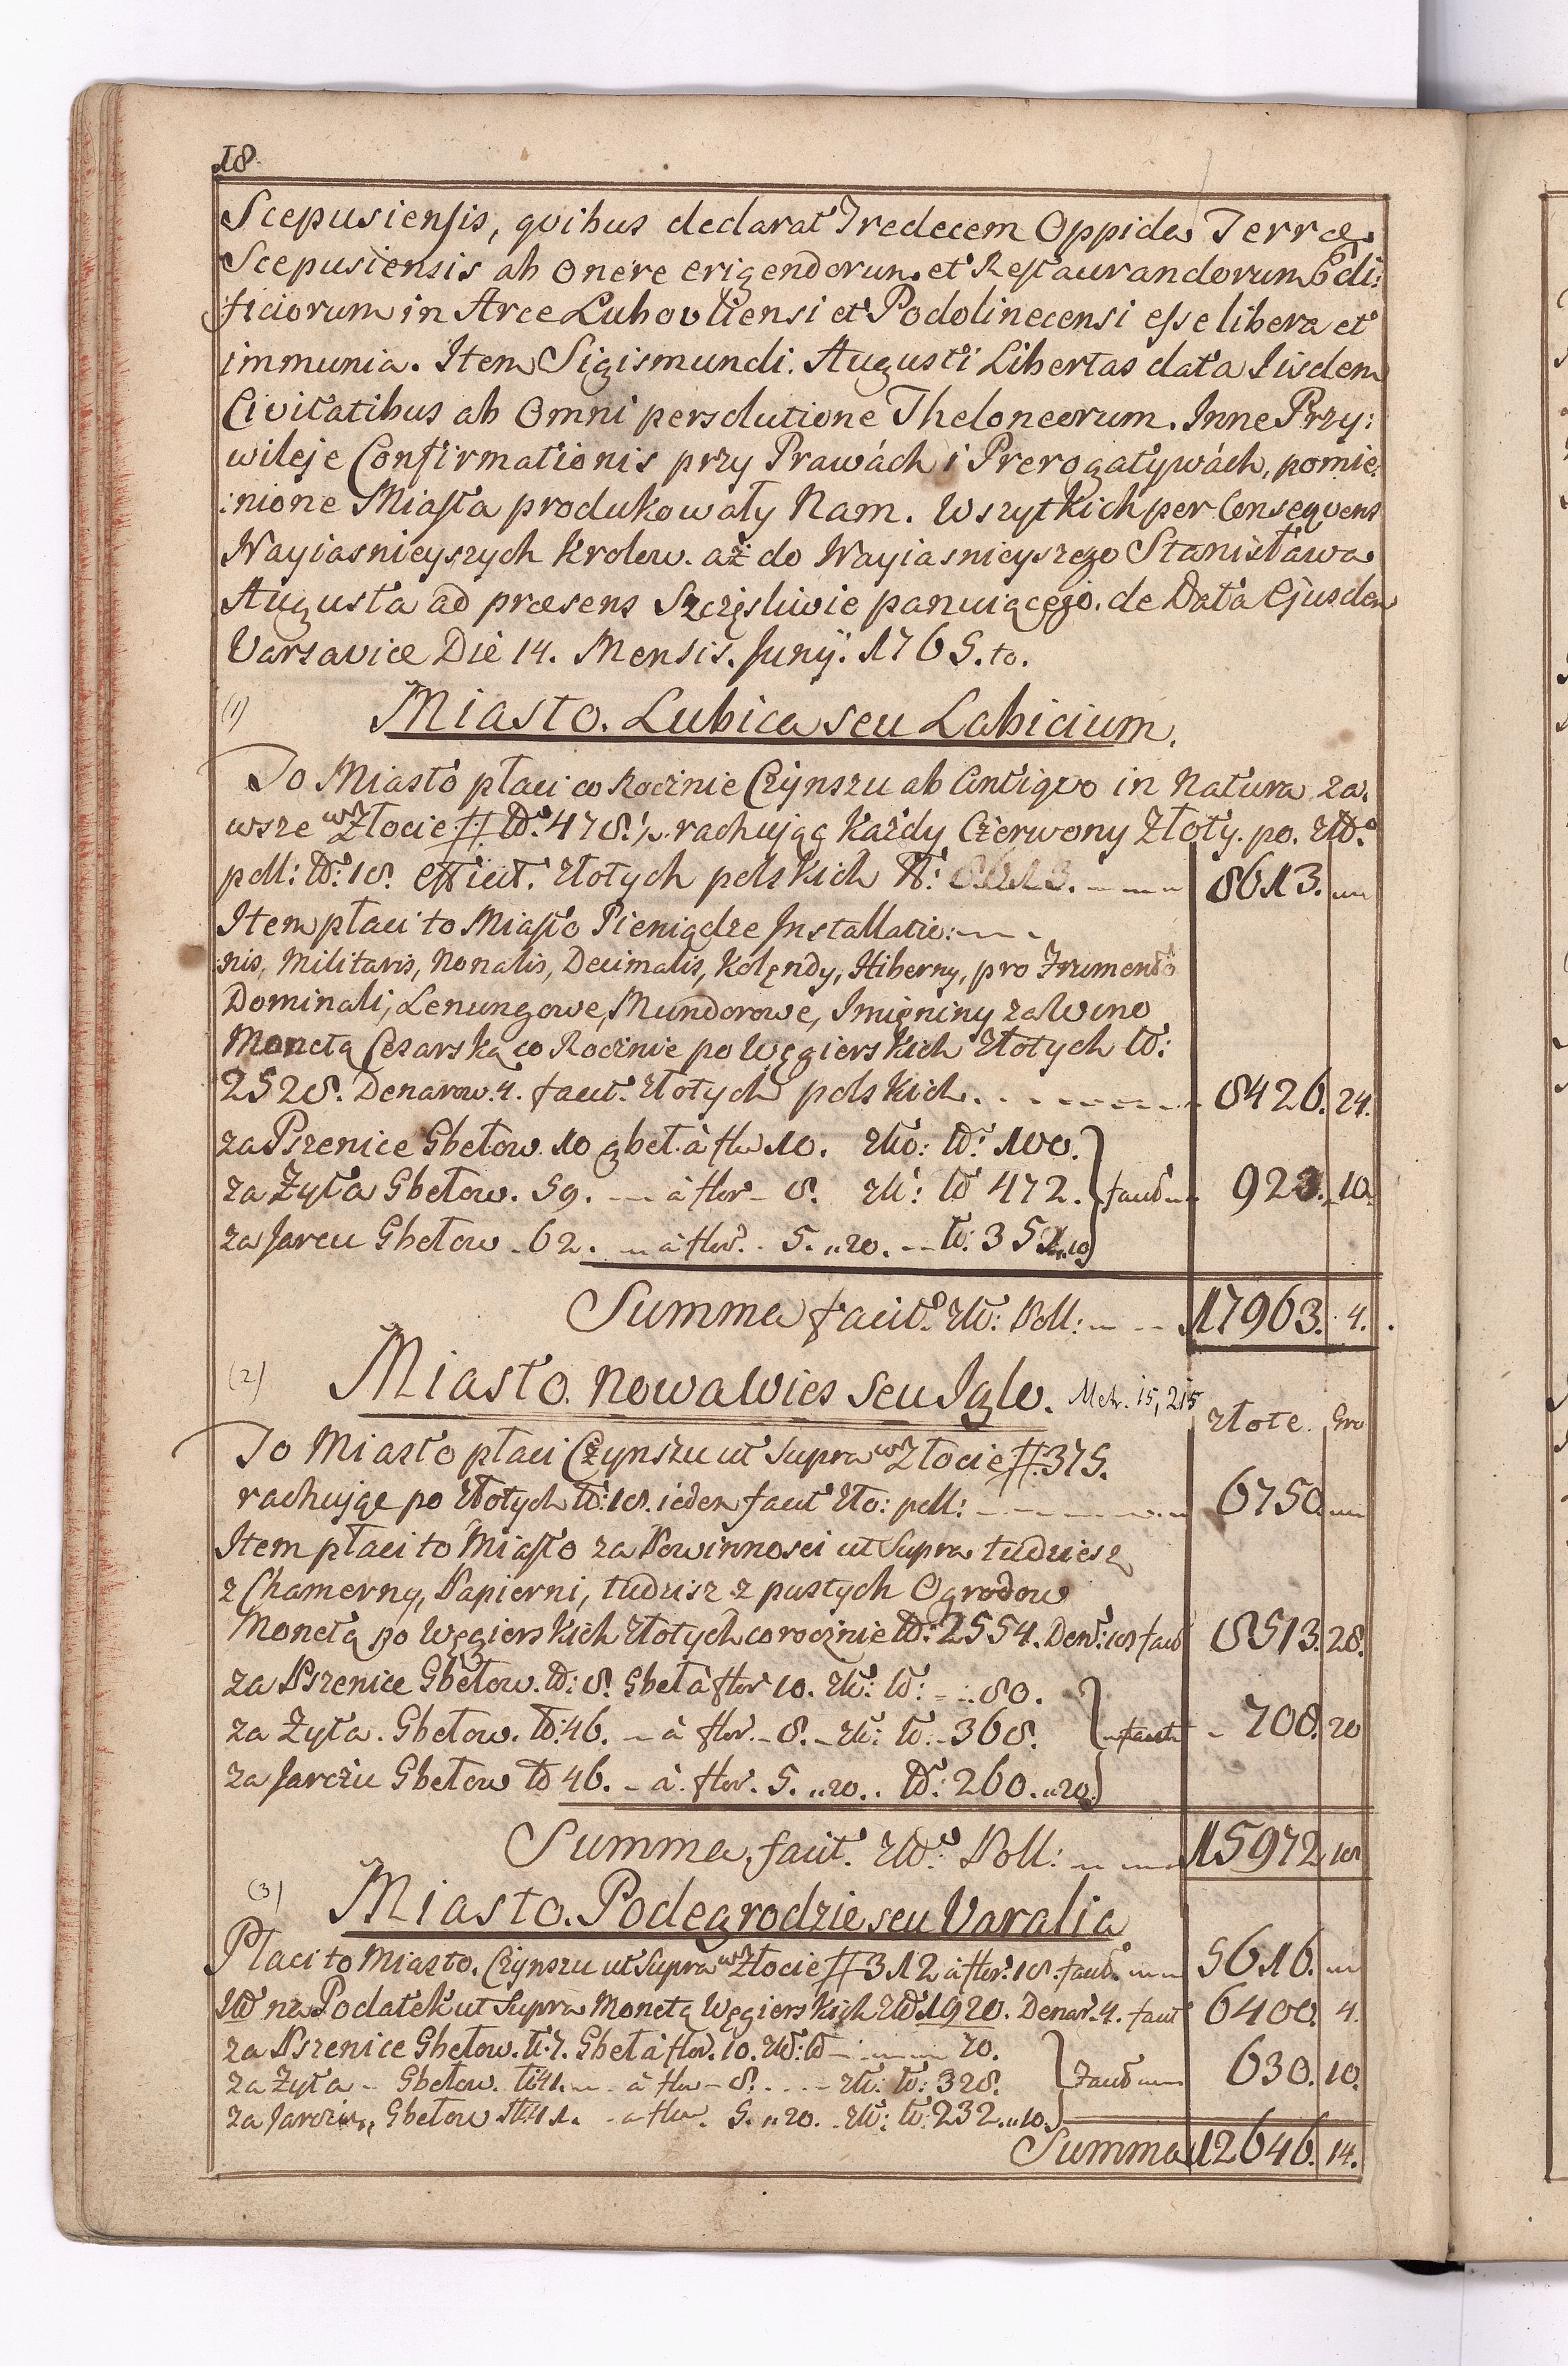 18.
Scepusiensis, qvibus declarat Tredecem Oppida Terræ
Scepusiensis ab Onere erigendorum et Restaurandorum Ædi:
ficiorum in Arce Lubovliensi et Podolinecensi esse libera et
immunia. Item Sigismundi. Augusti Libertas data Iisdem
Civitatibus ab Omni persolutione Theloneorum. Inne Przy:
wileje Confirmationis przy Prawách i Prerogatywách, pomie:
:nione Miasta produkowały Nam. Wszytkich per Conseqvens
Nayiasnieyszych Krolow. aż do Nayiasnieyszego Stanisława
Augusta ad præsens Szczęsliwie panuiącego. de Data Ejusdem
Varsaviæ Die 14. Mensis. Junÿ. 1765.to.
(1)
Miasto. Lubica seu Labicium.
To Miasto płaci co Rocznie Czynszu ab Antiqvo in Natura za:
wsze w Złocie # No. 478.½. rachując Każdy Czerwony Złoty. po. Zło.
poll: No: 18. efficit. Złotych polskich No: 8613. 8613. „
Item płaci to Miasto Pieniądze Installatio:
:nis, Militaris, Nonalis, Decimalis, Kolędy, Hiberny, pro Frumento
Dominali, Lenungowe, Mundorowe, Imieniny za Wino
Monetą Cesarską co Rocznie po Węgierskich Złotych No:
2528. Denarow. 4. facit. Złotych polskich. 8426. 24.
za Pszenice Gbełow. 10 gbeł. à flor 10. Zło: No: 100.
za Żyta Gbełow. 59. à flor 8. Zło: No 472. facit 923. 10.
za Jarcu Gbełow. 62. à flor. 5. „20. No: 351„10
Summa facit. Zło: Poll: 17963. 4.
(2)
Miasto. Nowawies seu Iglo. Metr. 15, 215
złote. Gro
To Miasto płaci Czynszu ut Supra w Złocie # 375.
rachując po Złotych No: 18. ieden facit Zło: poll: 6750. „
Item płaci to Miasto za Powinnosci ut Supra tudziesz
z Chamerny, Papierni, tudzisz z pustych Ogrodow
Monetą po Węgierskich Złotych corocznie No: 2554. Den: 18 facit 8513. 28.
za Pszenice Gbełow. No: 8. Gbeł à flor 10. Zło: No: 80.
za Żyta. Gbełow. No: 46. à flor. 8. Zło: No. 368. facit 708. 20
za Jarczu Gbełow No 46. à flor. 5. „20. No: 260. „20.
Summa, facit. Zło: Poll: 15972 18
(3)
Miasto. Podegrodzie seu Varalia
Płaci to Miasto. Czynszu ut Supra w Złocie # 312 à flor. 18. facit. 5616. „
No na Podatek ut Supra Monetą Węgierskich Zło 1920. Denar. 4. facit 6400. 4.
za Pszenice Gbełow. No. 7. Gbeł à flor. 10. Zło: No 70.
za Żyta Gbełow. No 41. à flor 8. Zło: No: 328. facit 630. 10.
za Jarczu, Gbełow No 41. à flor. 5. „20. Zło: No: 232. „10.
Summa 12646. 14.